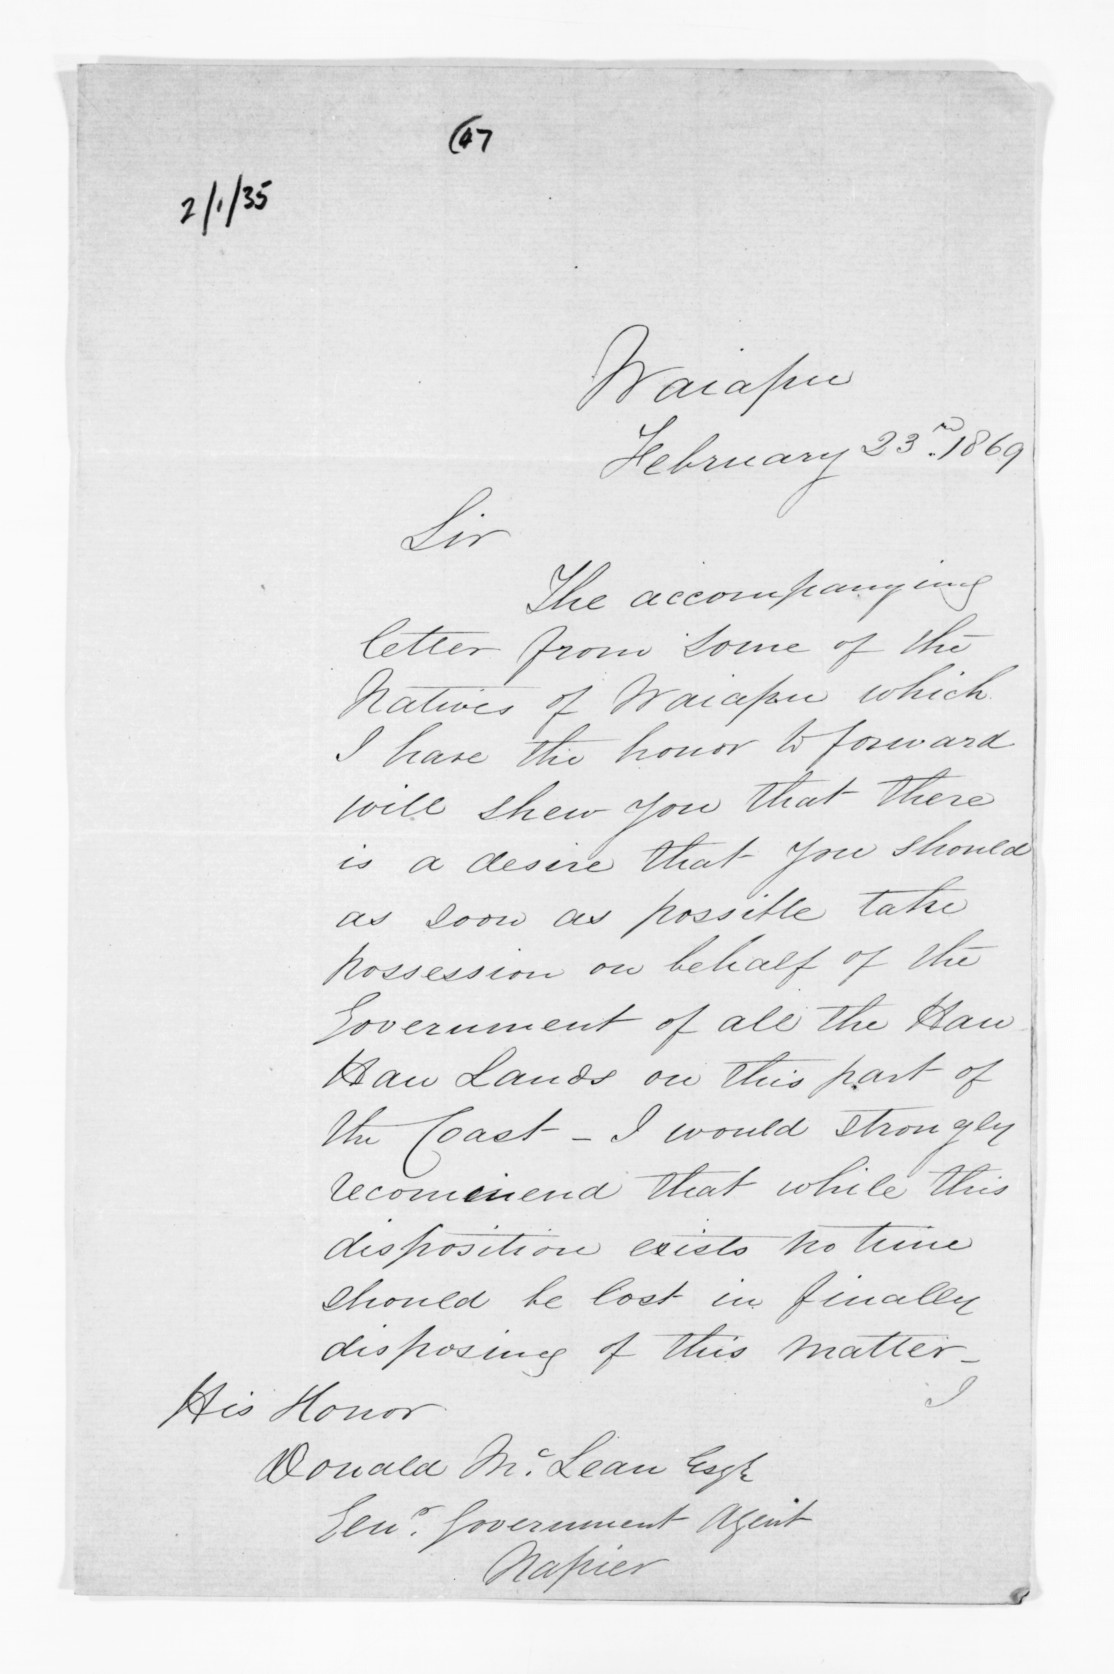 47
2/1/35
Waiapu
February 23rd. 1869
Sir
The accompanying
letter from some of the
Natives of Waiapu which
I have the honor to forward
will shew you that there
is a desire that you should
as soon as possible take
possession on behalf of the
Government of all the Hau
Hau Lands on this part of
the Coast – I would strongly
recommend that while this
disposition exists no time
should be lost in finally
disposing of this matter –
I
His Honor
Donald Mc. Lean Esqr
Genr. Government Agent
Napier